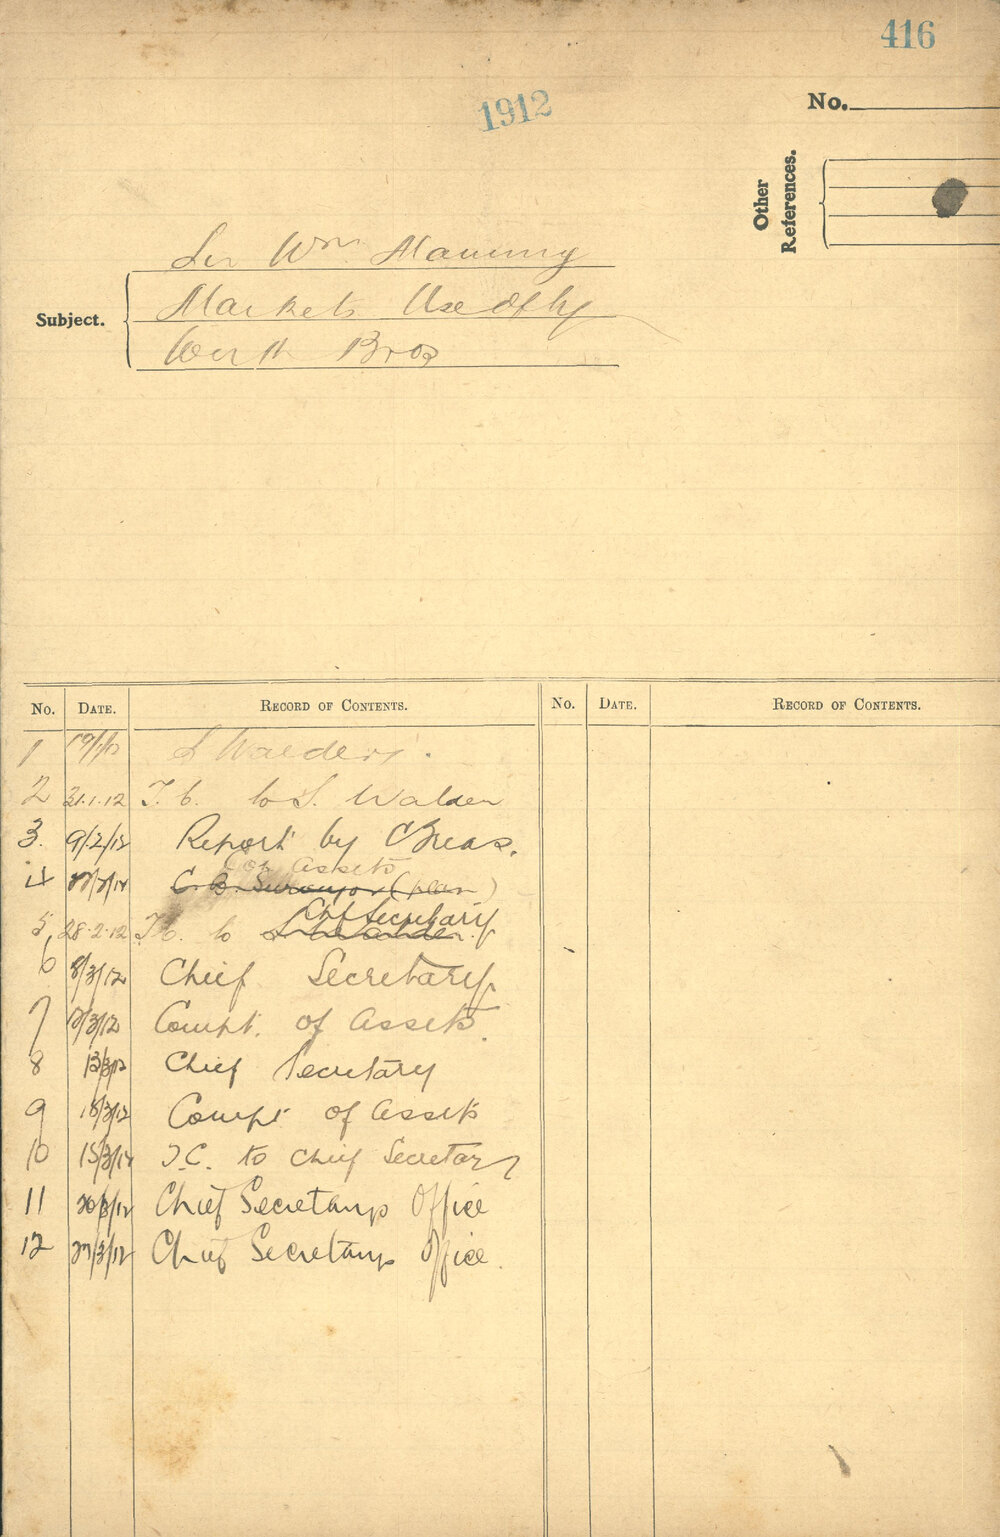 416
1912
No.
Other References.
Subject.
Sir Wm Manning
Markets Use of by
Wirth Bros
No. DATE. RECORD OF CONTENTS. No. DATE. RECORD OF CONTENTS.
1 S Walders.
2 31.1.12 T.C. to S. Walden
3. 9/2/12 Report by
4 C.B. Surveyor (plan)
Assets
5, 28.2.12 T.C. to Chf Secretary
6 8/3/12 Chief Secretary
7 12/3/12 Compt. of Assets.
8 13/3/12 Chief Secretary
9 15/3/12 Compt of Assets
10 15/3/12 T.C. to Chief Secretary
11 20/3/12 Chief Secretarys Office
12 27/3/12 Chief Secretarys Office.